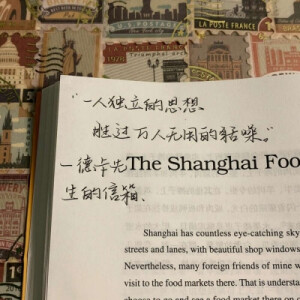 "一人独立的思想
胜过万人无用的聒噪。"
一德卡先
生的信箱、
The Shanghai Foo
Shanghai has countless eye-catching sky
streets and lanes, with beautiful shop windows
Nevertheless, many foreign friends of mine w
visit to the food markets there. That is underst
choose to go and see a food market there on